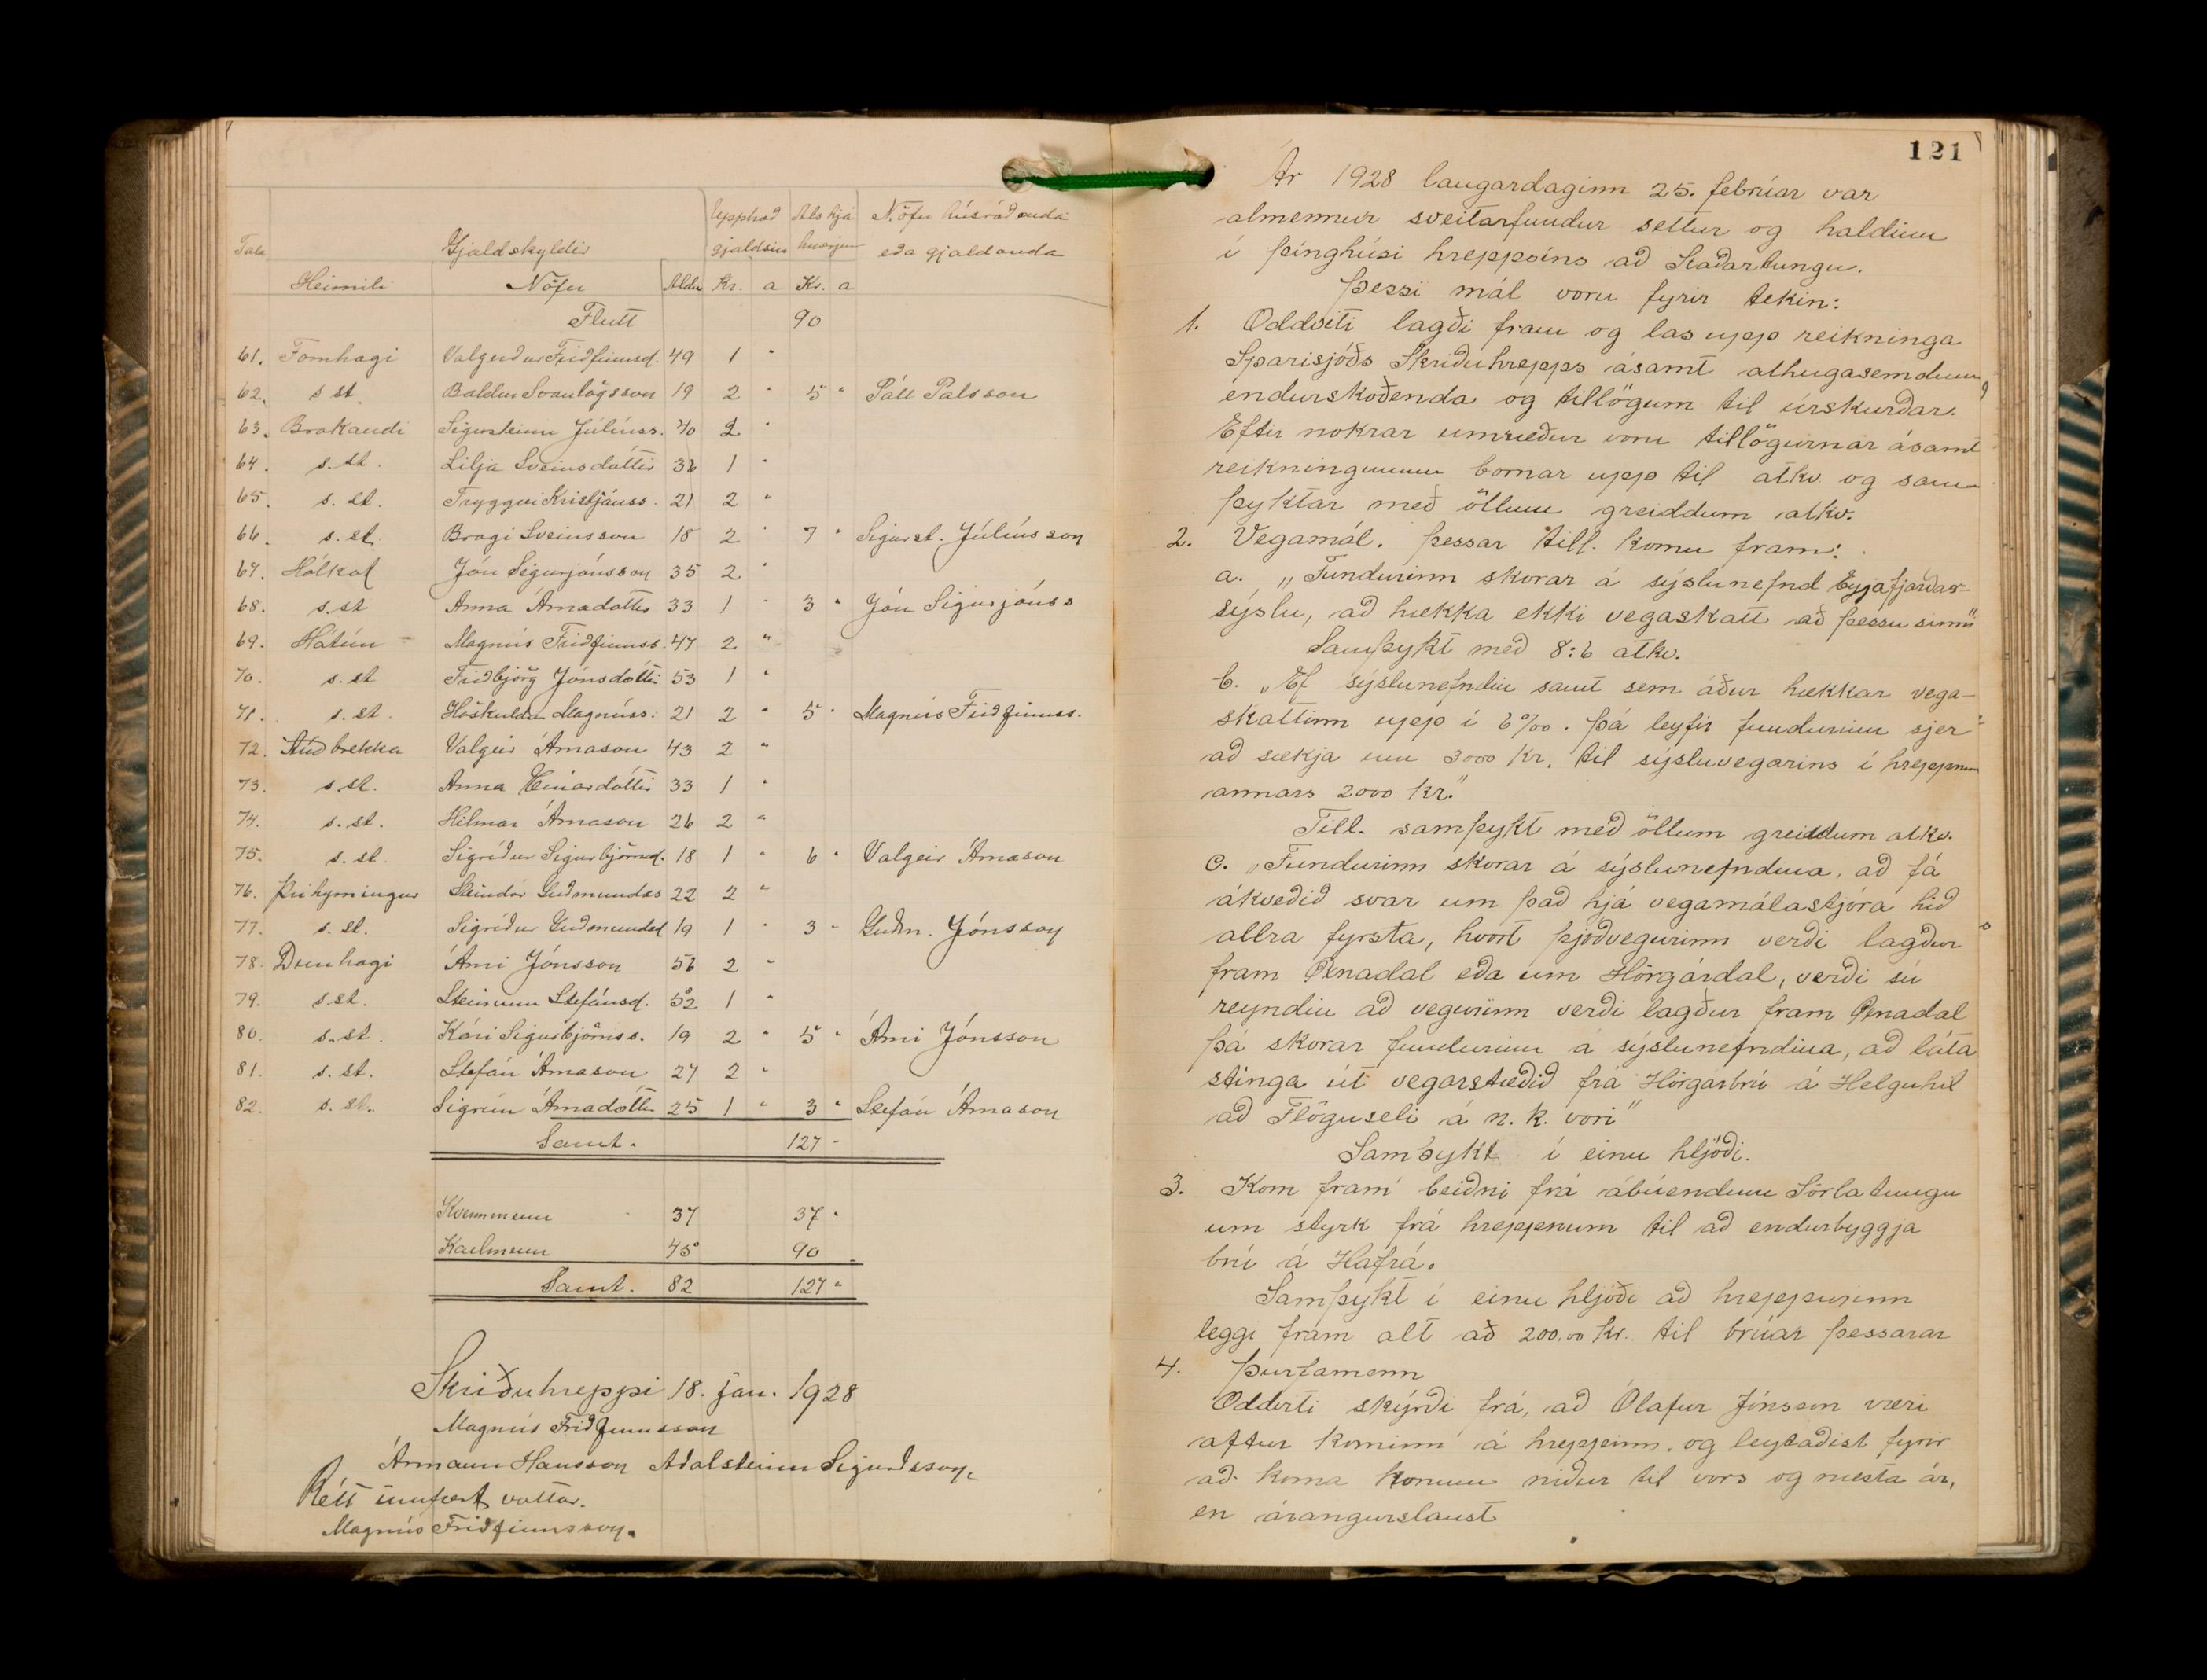 Tala Gjaldskyldir Upphæð gjaldsins Als hjá hverjum Nöfn húsráðenda eða gjaldenda
Heimili Nöfn Aldur Kr. a Kr. a
Flutt 90
61. Fornhagi Valgerður Friðfinnsd. 49 1 "
62. s st. Baldur Svanlögsson 19 2 " 5 " Páll Pálsson
63. Brakandi Sigursteinn Júlíuss. 40 2 "
64. s. st. Lilja Sveinsdóttir 36 1 "
65. s. st. Tryggvi Kristjánss. 21 2 "
66. s. st. Bragi Sveinsson 18 2 " 7 " Sigurst. Júlíusson
67. Hólkot Jón Sigurjónsson 35 2 "
68. s. st Anna Árnadóttir 33 1 " 3 " Jón Sigurjónss
69. Hátún Magnús Friðfinnss. 47 2 "
70. s. st Friðbjörg Jónsdóttir 53 1 "
71. s. st. Höskuldur Magnúss. 21 2 " 5 " Magnús Friðfinnss.
72. Auðbrekka Valgeir Árnason 43 2 "
73. s. st. Anna Einarsdóttir 33 1 "
74. s. st. Hilmar Árnason 26 2 "
75. s. st. Sigríður Sigurbjörnsd. 18 1 " 6 " Valgeir Árnason
76. Þríhyrningur Steindór Guðmundss 22 2 "
77. s. st. Sigríður Guðmundsd 19 1 " 3 " Guðm. Jónsson
78. Dunhagi Árni Jónsson 56 2 "
79. s. st. Steinunn Stefánsd. 52 1 "
80. s. st. Kári Sigurbjörnss. 19 2 " 5 " Árni Jónsson
81. s. st. Stefán Árnason 27 2 "
82. s. st. Sigrún Árnadóttir 25 1 " 3 " Stefán Árnason
Samt. 127 "
Kvennmenn 37 37 "
Karlmenn 45 90 "
Samt. 82 127 "
Skriðuhreppi 18. jan. 1928
Magnús Friðfinnsson
Ármann Hansson Aðalsteinn Sigurðsson.
Rétt innfært vottar.
Magnús Friðfinnsson.
121
Ár 1928 laugardaginn 25. febrúar var
almennur sveitarfundur settur og haldinn
í þinghúsi hreppsins að Staðartungu.
Þessi mál voru fyrir tekin:
1. Oddviti lagði fram og las upp reikninga
Sparisjóðs Skriðuhrepps ásamt athugasemdum
endurskoðenda og tillögum til úrskurðar.
Eftir nokrar umræður voru tillögurnar ásamt
reikningunum bornar upp til atkv. og sam-
þyktar með öllum greiddum atkv.
2. Vegamál. Þessar till. komu fram:
a. „Fundurinn skorar á sýslunefnd Eyjafjarðar-
sýslu, að hækka ekki vegaskatt að þessu sinni"
Samþykt með 8:6 atkv.
b. „Ef sýslunefndin samt sem áður hækkar vega-
skattinn upp í 6‰. þá leyfir fundurinn sjer
að sækja um 3000 kr. til sýsluvegarins í hreppnum
annars 2000 kr."
Till. samþykt með öllum greiddum atkv.
c. „Fundurinn skorar á sýslunefndina, að fá
ákveðið svar um það hjá vegamálastjóra hið
allra fyrsta, hvort þjóðvegurinn verði lagður
fram Öxnadal eða um Hörgárdal, verði sú
reyndin að vegurinn verði lagður fram Öxnadal
þá skorar fundurinn á sýslunefndina, að láta
stinga út vegarstæðið frá Hörgárbrú á Helguhil
að Flöguseli á n. k. vori"
Samþykt í einu hljóði.
3. Kom fram beiðni frá ábúendum Sörlatungu
um styrk frá hreppnum til að endurbyggja
brú á Hafrá.
Samþykt í einu hljóði að hreppurinn
leggi fram alt að 200.00 kr. til brúar þessarar
4. Þurfamenn
Oddviti skýrði frá, að Ólafur Jónsson væri
aftur kominn á hreppinn, og leytaðist fyrir
að koma honum niður til vors og næsta ár,
en árangurslaust